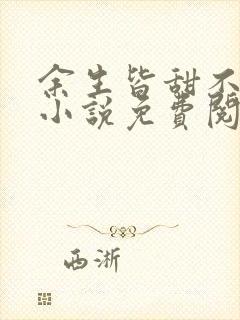 余生皆甜不
小说免费阅
西淅